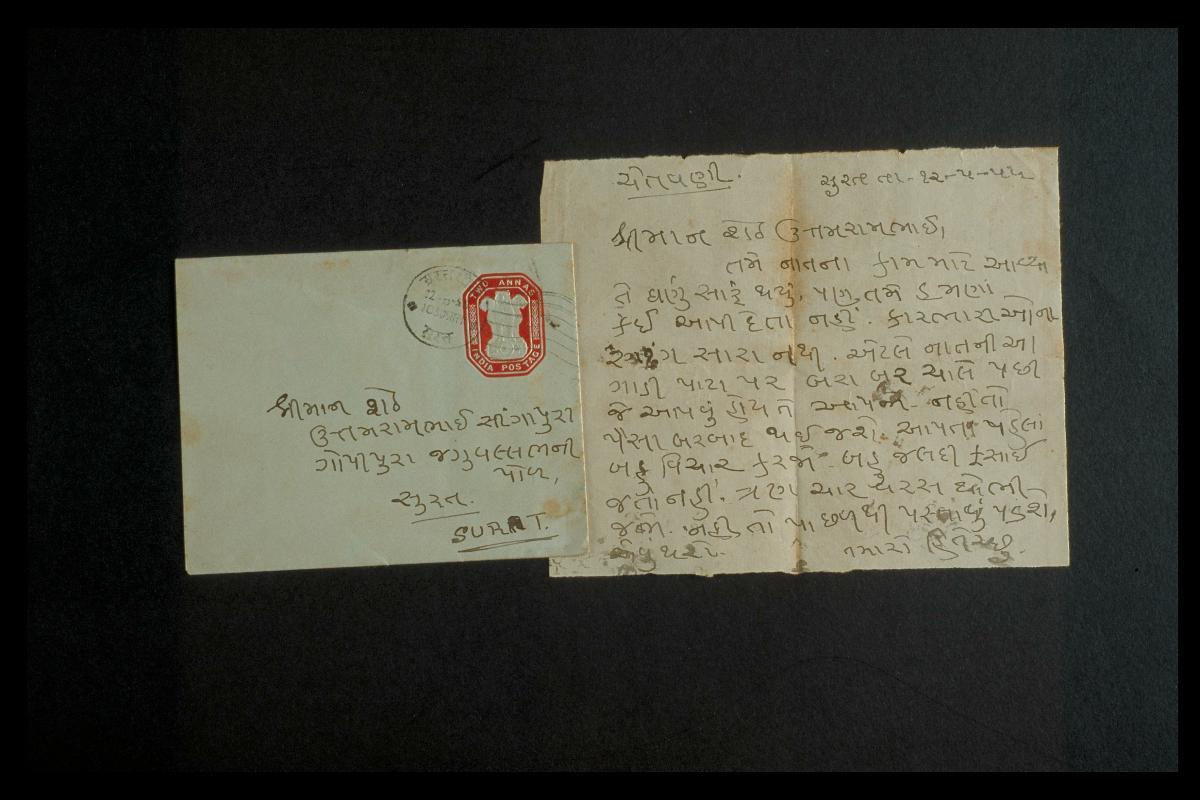 શ્રીમાન શેઠ
ઉત્તમરામભાઈ સીંગાપુરી
ગોપીપુરા જગુવલ્લભની
પોળ,
સુરત.
SURAT.
TWO ANNAS
INDIA POSTAGE
સુરત
ચેતવણી.
સુરત તા-૧૨-૫-૫૫
શ્રીમાન શેઠ ઉત્તમરામભાઈ,
તમે નાતના કામ માટે આવ્યા
તે ઘણું સારૂં થયું, પણ તમે હમણાં
કંઈ આપી દેતા નહીં. કારભારીઓના
સારા નથી. એટલે નાતની આ
ગાડી પાટા પર બરાબર ચાલે પછી
જે આપવું હોય તે આપજો. નહીતો
પૈસા બરબાદ થઈ જશે. આપતા પહેલાં
બહુ વિચાર કરજો. બહુ જલદી ફસાઈ
જતા નહીં. ત્રણ ચાર વરસ થોભી
જજો. નહી તો પાછળથી પસ્તાવું પડશે,
એવું થશે. તમારો હિતેચ્છુ.